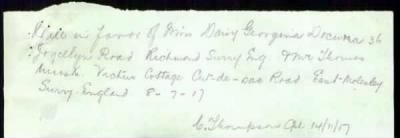 Will in favor of Miss Daisy Georgenia 36
Jocellyn Road Richmond Surry Eng & Mr Thomas
Cottage Cul-de-sac Road East-Molesley
Surry England 8-7-17
C. Thompson Cpl 14/11/17